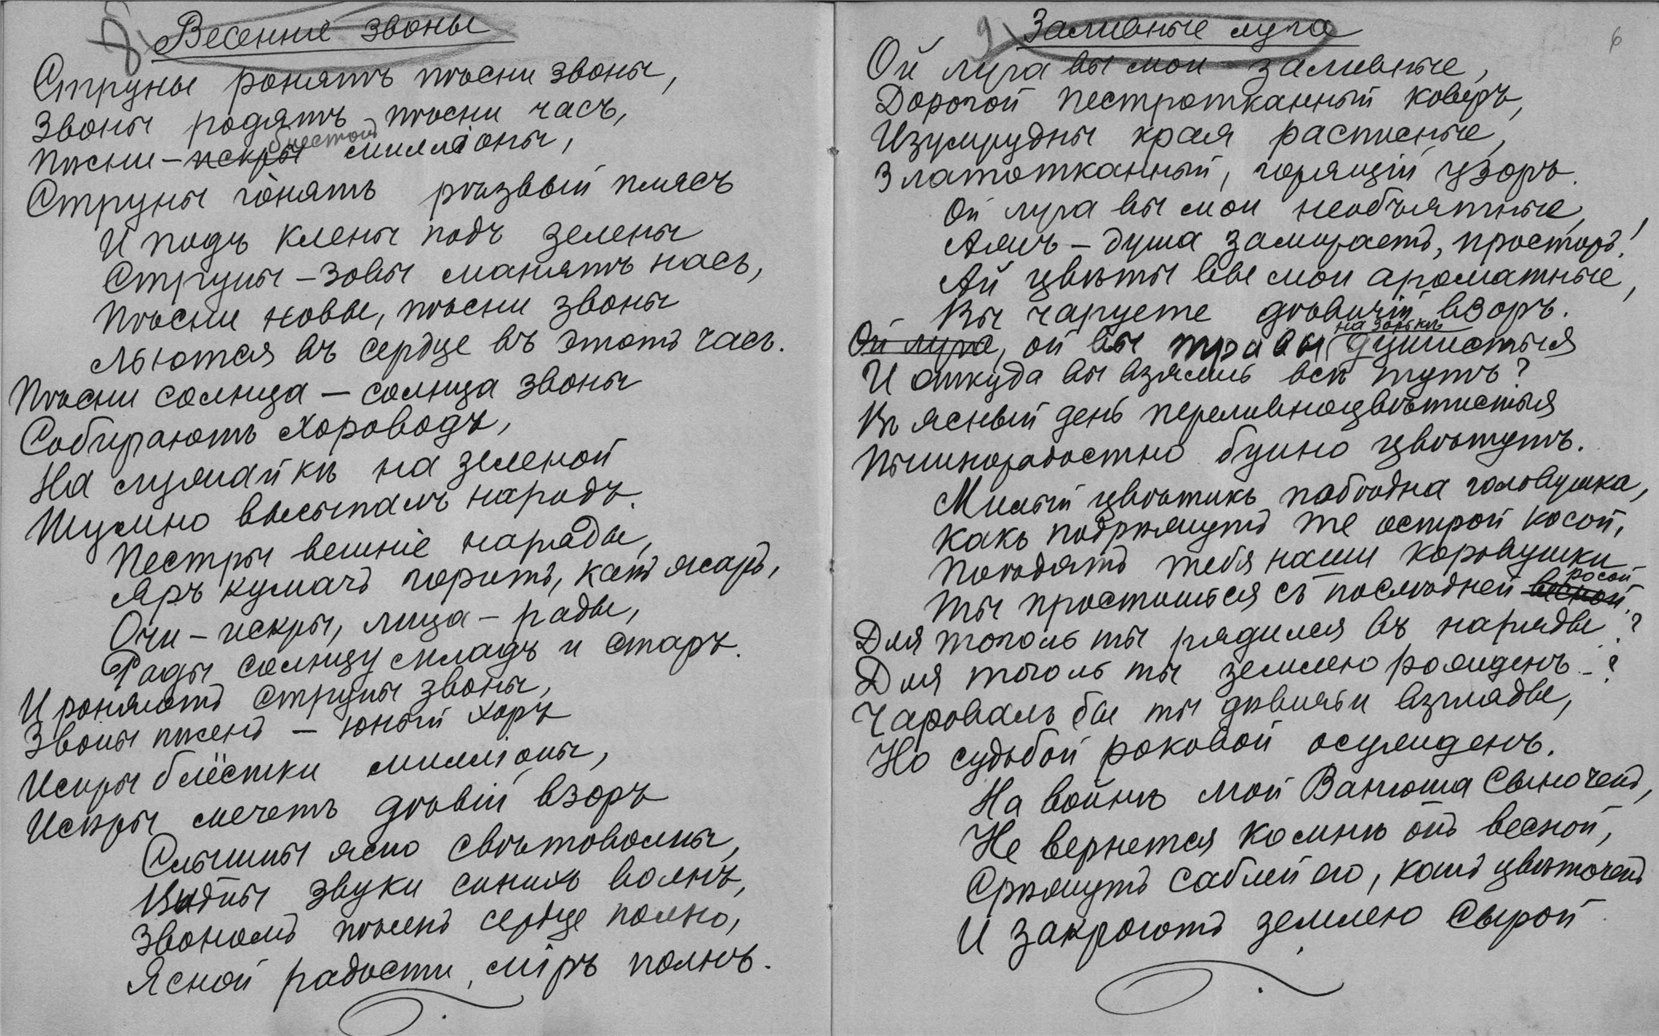 8
Весенніе звоны
Струны ронятъ пѣсни звоны,
Звоны родятъ пѣсни часъ,
блестки
Пѣсни – искры милліоны,
Струны гонятъ рѣзвый плясъ
И подъ клены подъ зелены
Струны – зовы манятъ насъ,
Пѣсни новы, пѣсни звоны
Льются въ сердце въ этотъ часъ.
Пѣсни солнца – солнца звоны
Собираютъ хороводъ,
На лужайкѣ на зеленой
Шумно высыпалъ народъ.
Пестры вешніе наряды,
Яръ кумачъ горитъ, какъ жаръ,
Очи – искры, лица – рады,
Рады солнцу младъ и старъ.
И роняютъ струны звоны,
Звоны пѣсенъ – юный хоръ
Искры блёстки милліоны,
Искры мечетъ дѣвій взоръ
Слышны ясно свѣтоволны,
Видны звуки синихъ волнъ,
Звономъ пѣсенъ сердце полно,
Ясной радости міръ полнъ.
9
Заливные луга
6
Ой луга вы мои заливные,
Дорогой пестротканный коверъ,
Изумрудны края расписные,
Златотканный, горящій узоръ.
Ой луга вы мои необъятные,
Ажъ – душа замираетъ, просторъ!
Ай цвѣты вы мои ароматные,
Вы чаруете дѣвичій взоръ.
на зорькѣ
Ой луга, ой вы травы душистыя
И откуда вы взялись всѣ тутъ?
Въ ясный день переливноцвѣтистыя
Пышнорадостно буйно цвѣтутъ.
Милый цвѣтикъ побѣдна головушка,
Какъ подрѣжутъ те острой косой,
Поѣдятъ тебя наши коровушки
росой
Ты простишься съ послѣдней весной.
Для того ль ты рядился въ наряды?
Для того ль ты землею рожденъ –?
Чаровалъ бы ты дѣвичьи взгляды,
Но судьбой роковой осужденъ.
На войнѣ мой Ванюша сыночекъ,
Не вернется ко мнѣ онъ весной,
Срѣжутъ саблей его, какъ цвѣточекъ
И закроютъ землею сырой